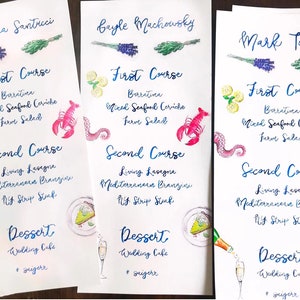 a Santucci
First Course
Burratina
Mixed Seafood Ceviche
Farm Salad
Second Course
Living Lasagna
Mediterranean Branzino
NY Strip Steak
Dessert
Wedding Cake
Gayle Machowsky
First Course
Burratina
Mixed Seafood Ceviche
Farm Salad
Second Course
Living Lasagna
Mediterranean Branzino
NY Strip Steak
Dessert
Wedding Cake
Mark T
First Course
Burratina
Mixed Seafood
Farm Salad
Second Course
Living Lasagna
Mediterranean
NY Strip
Dessert
Wedding